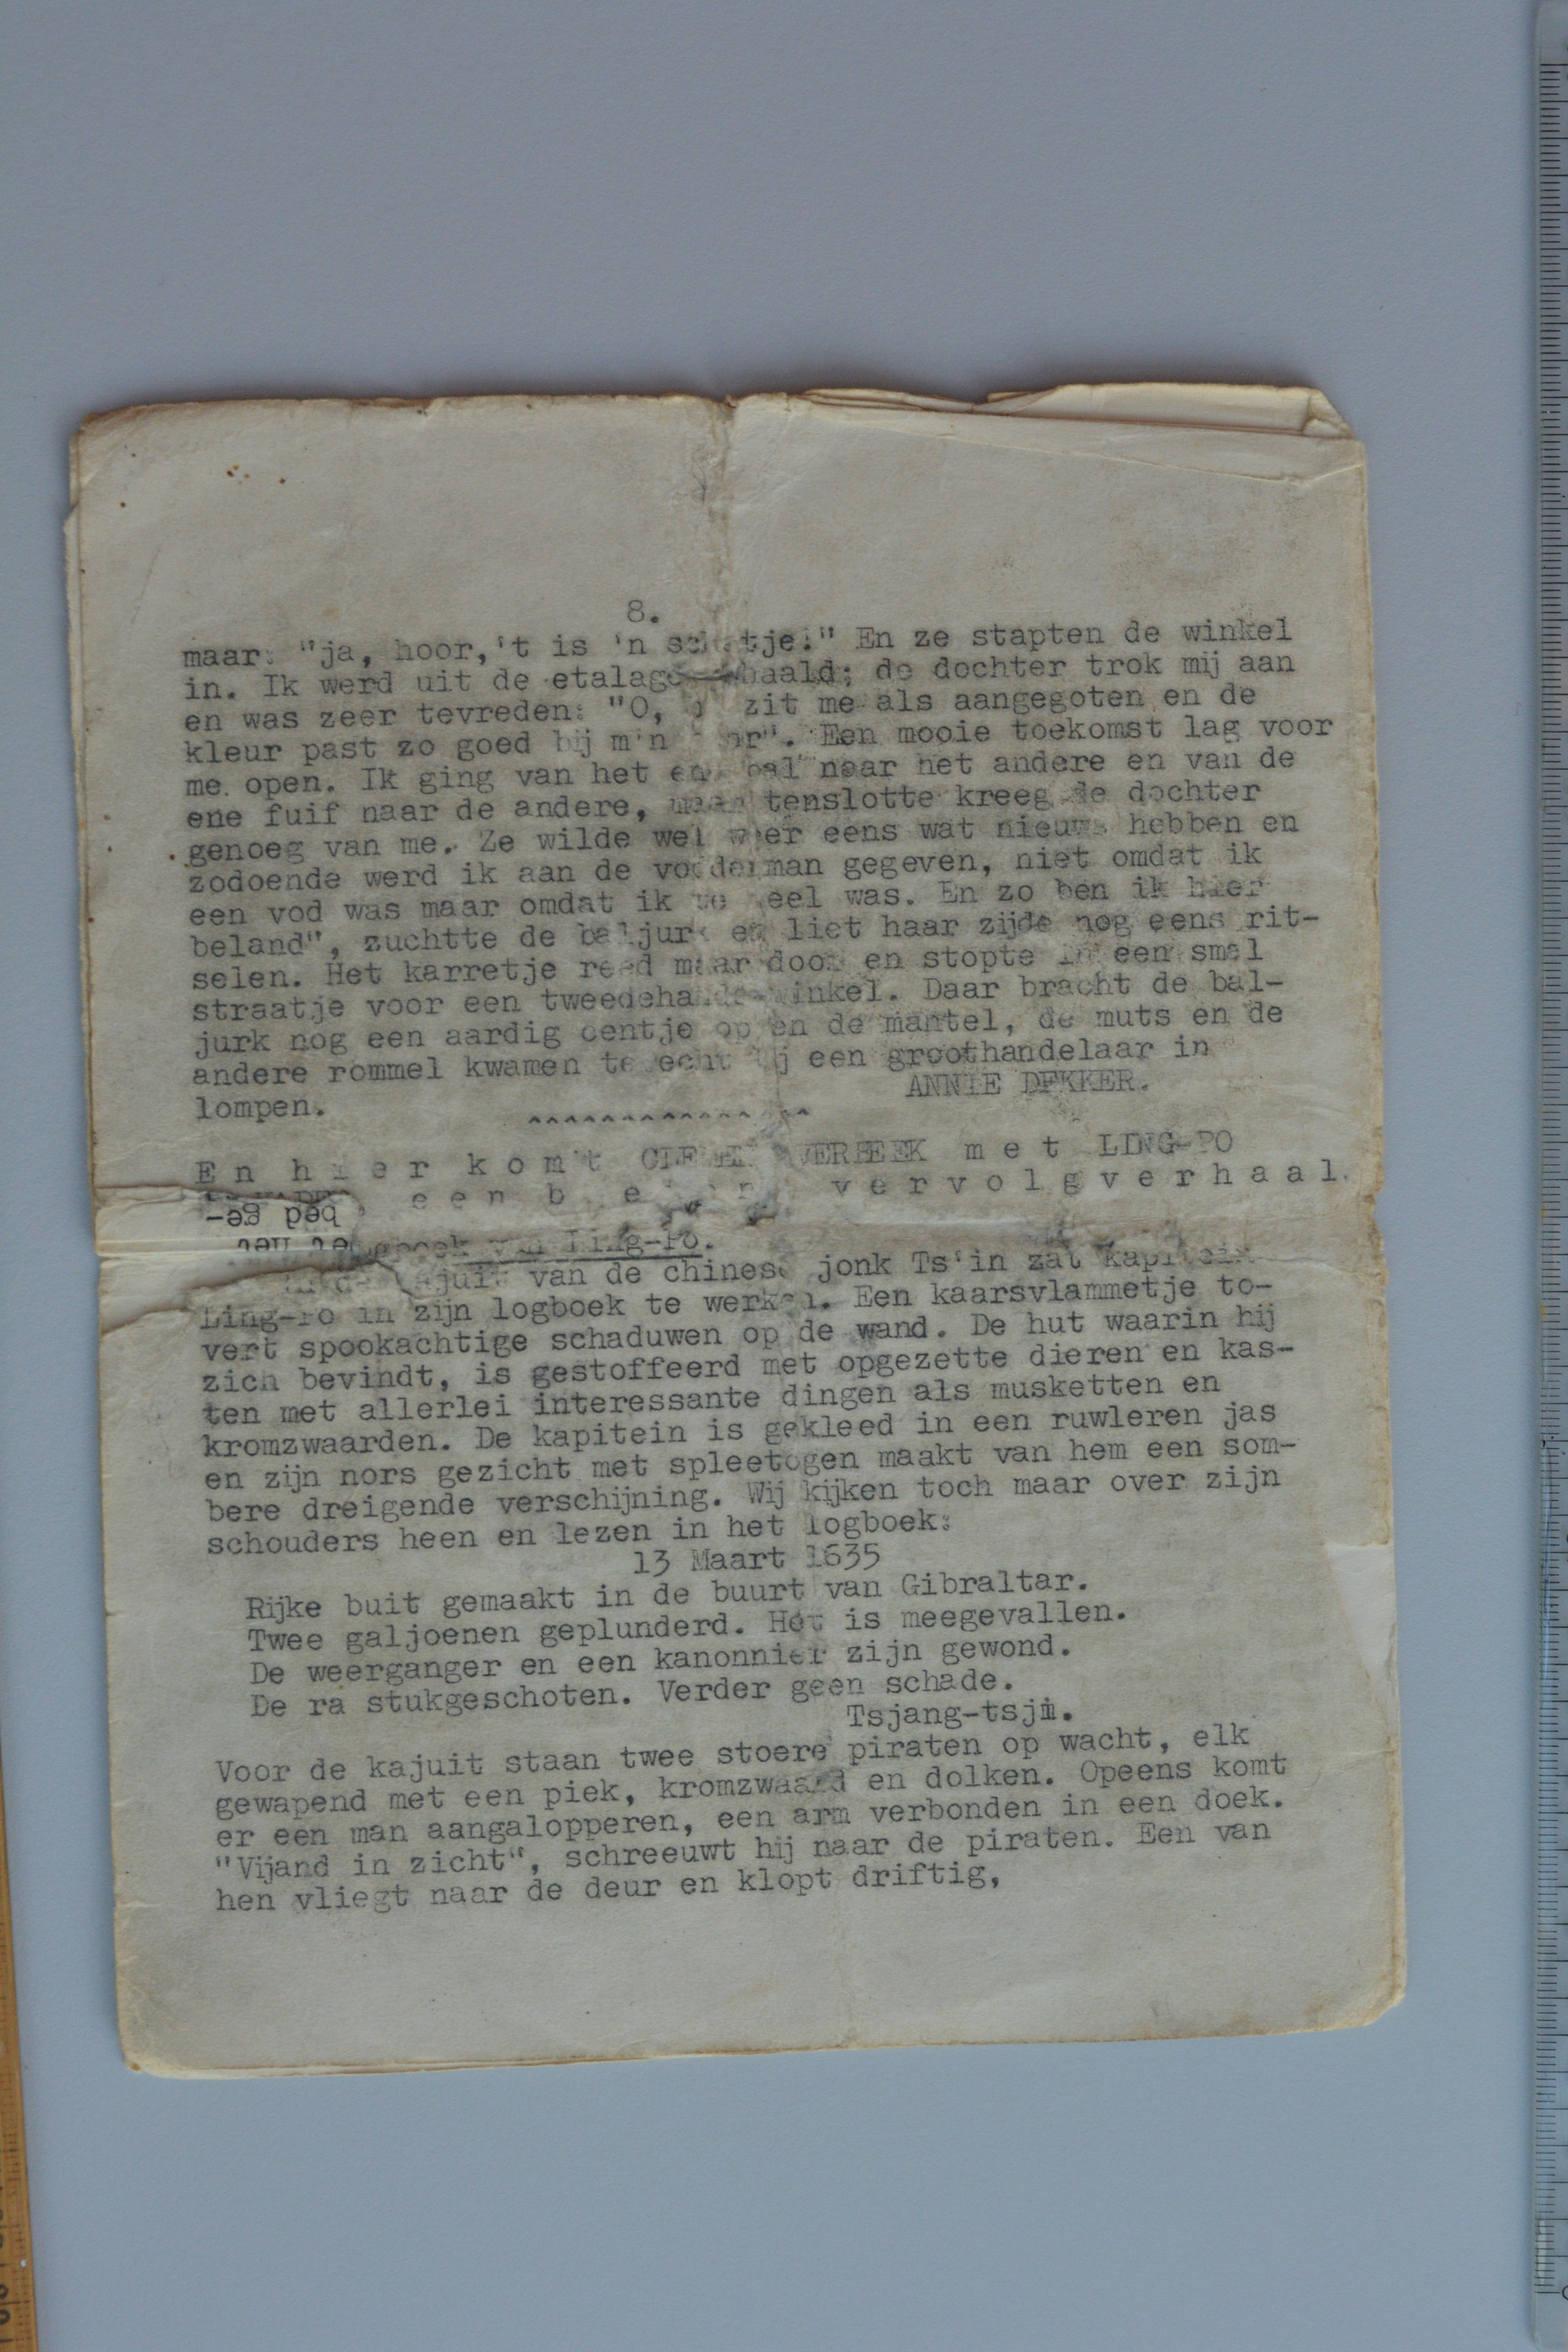 8.
maar: "ja, hoor,'t is 'n schatje!" En ze stapten de winkel
in. Ik werd uit de etalage gehaald; de dochter trok mij aan
en was zeer tevreden: "O, zit me als aangegoten en de
kleur past zo goed bij m'n Een mooie toekomst lag voor
me open. Ik ging van het ene bal naar het andere en van de
ene fuif naar de andere, maar tenslotte kreeg de dochter
genoeg van me. Ze wilde wel weer eens wat nieuws hebben en
zodoende werd ik aan de vodderman gegeven, niet omdat ik
een vod was maar omdat ik te geel was. En zo ben ik hier
beland", zuchtte de baljurk en liet haar zijde nog eens rit-
selen. Het karretje reed maar door en stopte in een smal
straatje voor een tweedehands-winkel. Daar bracht de bal-
jurk nog een aardig centje op en de mantel, de muts en de
andere rommel kwamen terecht bij een groothandelaar in
lompen.
ANNIE DEKKER.
^^^^^^^^^^^^^^^
En hier komt VERBEEK met LING-PO
een vervolgverhaal.
bed ge-
van Ling-Po.
kajuit van de chinese jonk Ts'in zat kapitein
Ling-Po in zijn logboek te werken. Een kaarsvlammetje to-
vert spookachtige schaduwen op de wand. De hut waarin hij
zich bevindt, is gestoffeerd met opgezette dieren en kas-
ten met allerlei interessante dingen als musketten en
kromzwaarden. De kapitein is gekleed in een ruwleren jas
en zijn nors gezicht met spleetogen maakt van hem een som-
bere dreigende verschijning. Wij kijken toch maar over zijn
schouders heen en lezen in het logboek:
13 Maart 1635
Rijke buit gemaakt in de buurt van Gibraltar.
Twee galjoenen geplunderd. Het is meegevallen.
De weerganger en een kanonnier zijn gewond.
De ra stukgeschoten. Verder geen schade.
Tsjang-tsjin.
Voor de kajuit staan twee stoere piraten op wacht, elk
gewapend met een piek, kromzwaard en dolken. Opeens komt
er een man aangalopperen, een arm verbonden in een doek.
"Vijand in zicht", schreeuwt hij naar de piraten. Een van
hen vliegt naar de deur en klopt driftig,